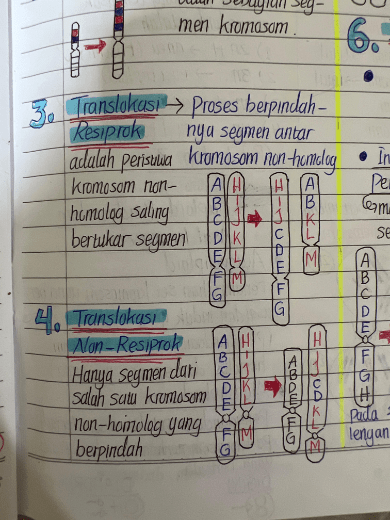 men kromosom.
6.
3. Translokasi → Proses berpindah-
Resiprok nya segmen antar
adalah peristiwa kromosom non-homolog
kromosom non-
homolog saling
bertukar segmen
A B C D E F G
H I J K L M
H I J C D E F G
A B K L M
4. Translokasi
Non-Resiprok
Hanya segmen dari
salah satu kromosom
non-homolog yang
berpindah
A B C D E F G
H I J K L M
A B D E F G
H I J C D K L M
A B C D E F G H
Pada
lengan